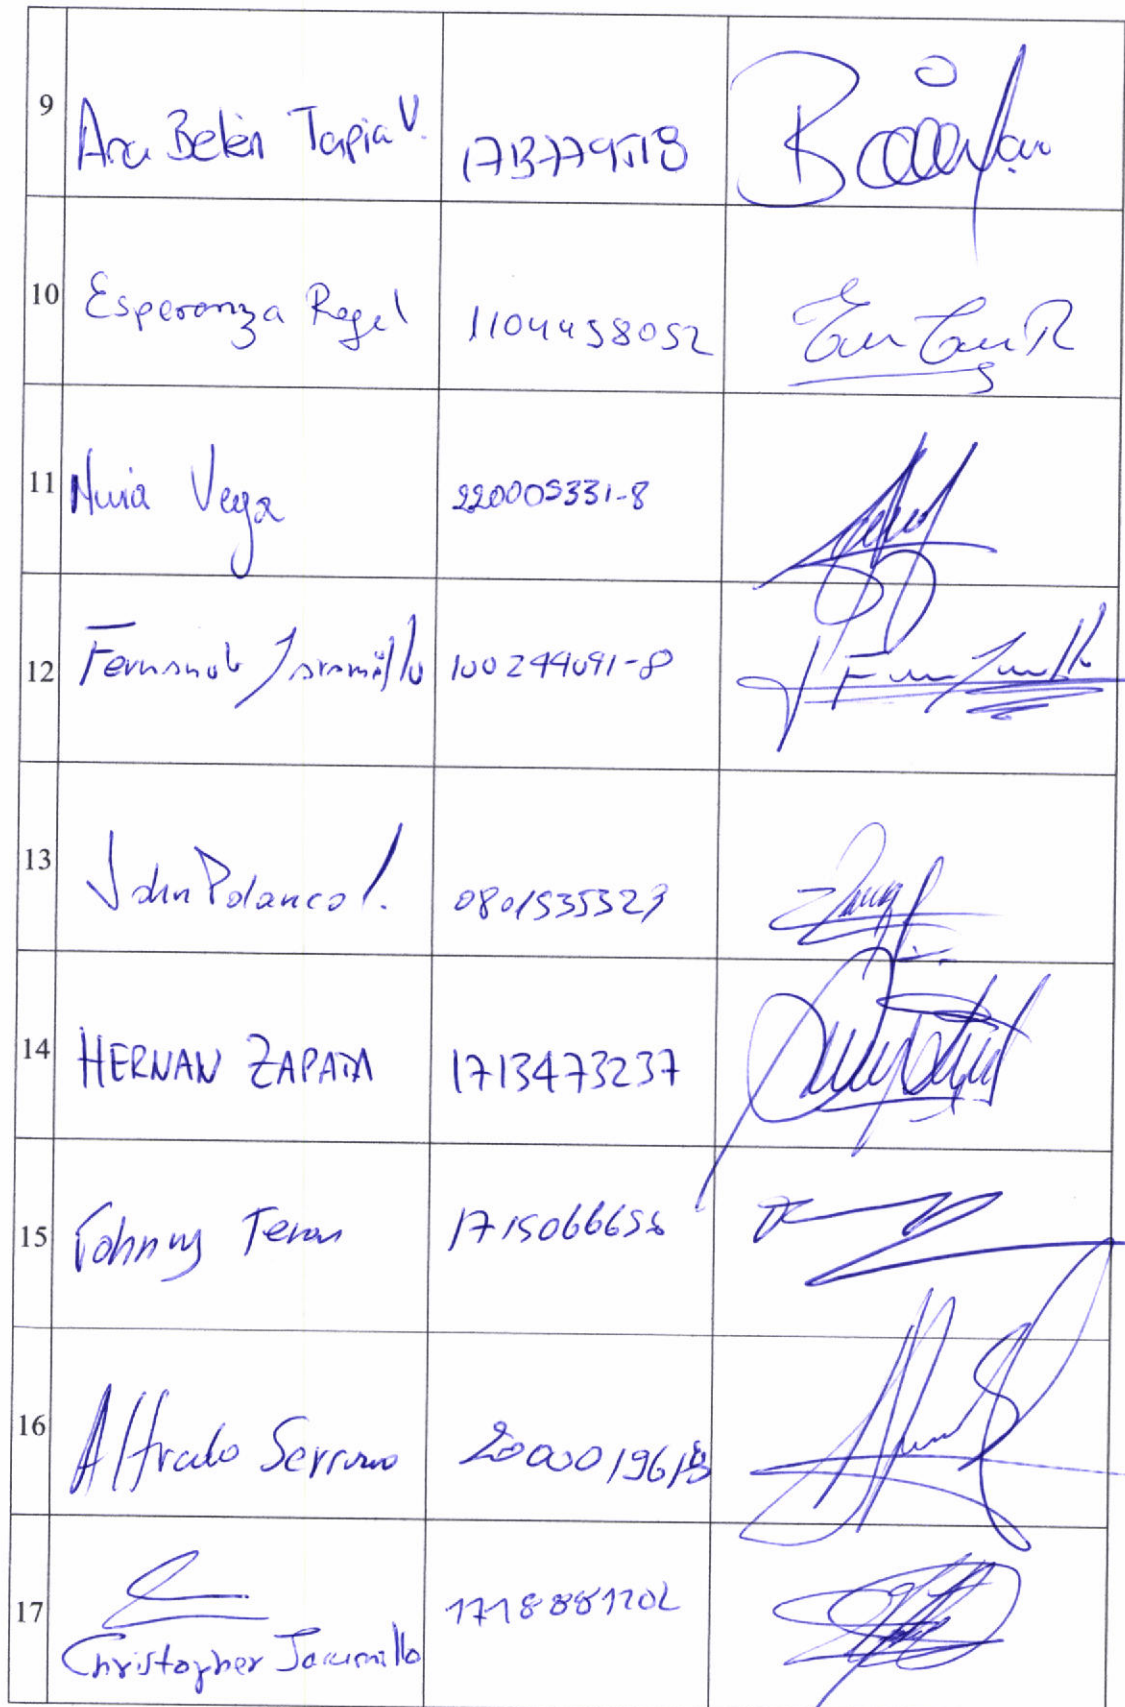 9 Ana Belén Tapia V. 1713779518
10 Esperanza Rogel 1104458052
11 Nuria Vega 220005331-8
12 Fernando Jaramillo 100244091-8
13 John Polanco l. 0801535323
14 HERNAN ZAPATA 1713473237
15 Johnny Teran 1715066656
16 Alfredo Serrano
17 Christopher Jaramillo 1718881202